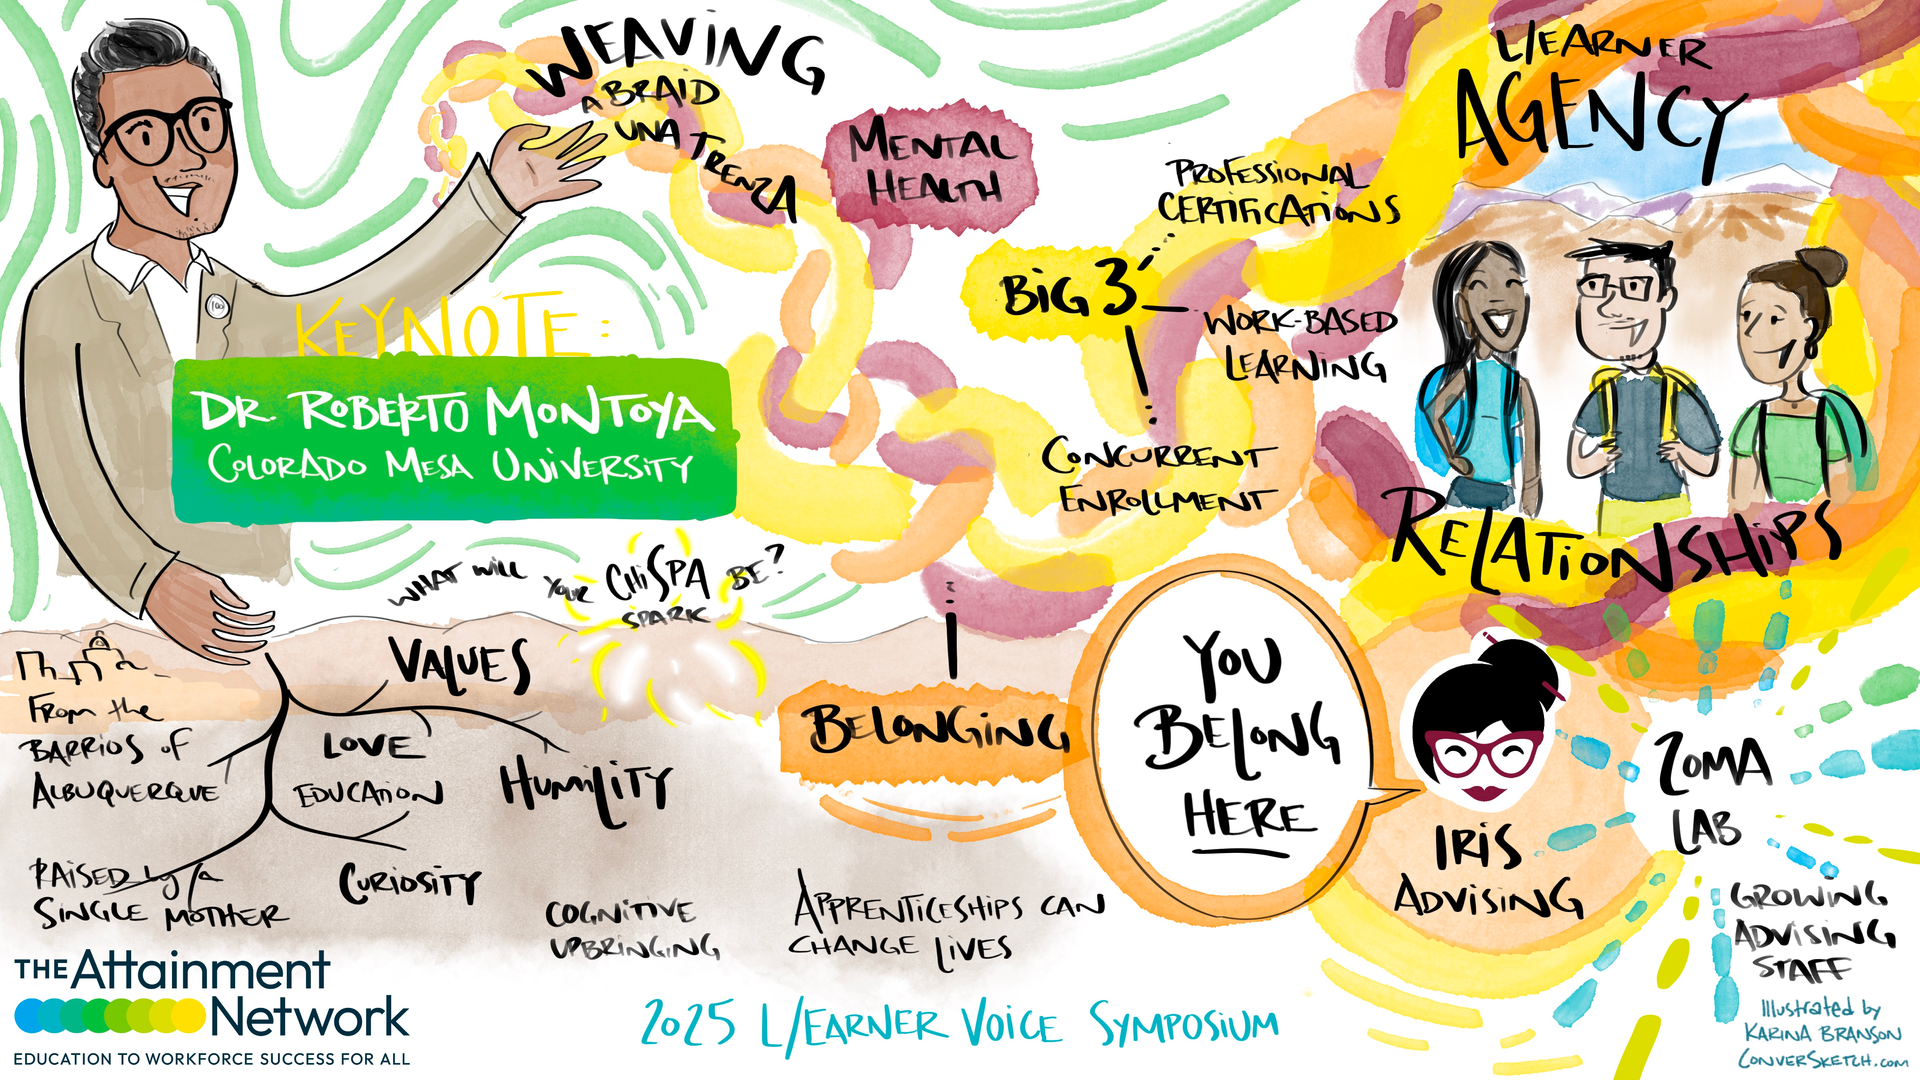 WEAVING
A BRAID
UNA TRENZA
KEYNOTE:
DR. ROBERTO MONTOYA
COLORADO MESA UNIVERSITY
MENTAL
HEALTH
BIG 3
PROFESSIONAL
CERTIFICATIONS
WORK-BASED
LEARNING
CONCURRENT
ENROLLMENT
L/EARNER
AGENCY
RELATIONSHIPS
WHAT WILL YOUR CHISPA BE?
SPARK
From the
BARRIOS of
ALBUQUERQUE
RAISED by a
SINGLE MOTHER
VALUES
LOVE
EDUCATION
HUMILITY
CURIOSITY
COGNITIVE
UPBRINGING
BELONGING
APPRENTICESHIPS CAN
CHANGE LIVES
YOU
BELONG
HERE
IRIS
ADVISING
ZOMA
LAB
GROWING
ADVISING
STAFF
THE Attainment
Network
EDUCATION TO WORKFORCE SUCCESS FOR ALL
2025 L/EARNER VOICE SYMPOSIUM
Illustrated by
KARINA BRANSON
CONVERSKETCH.com